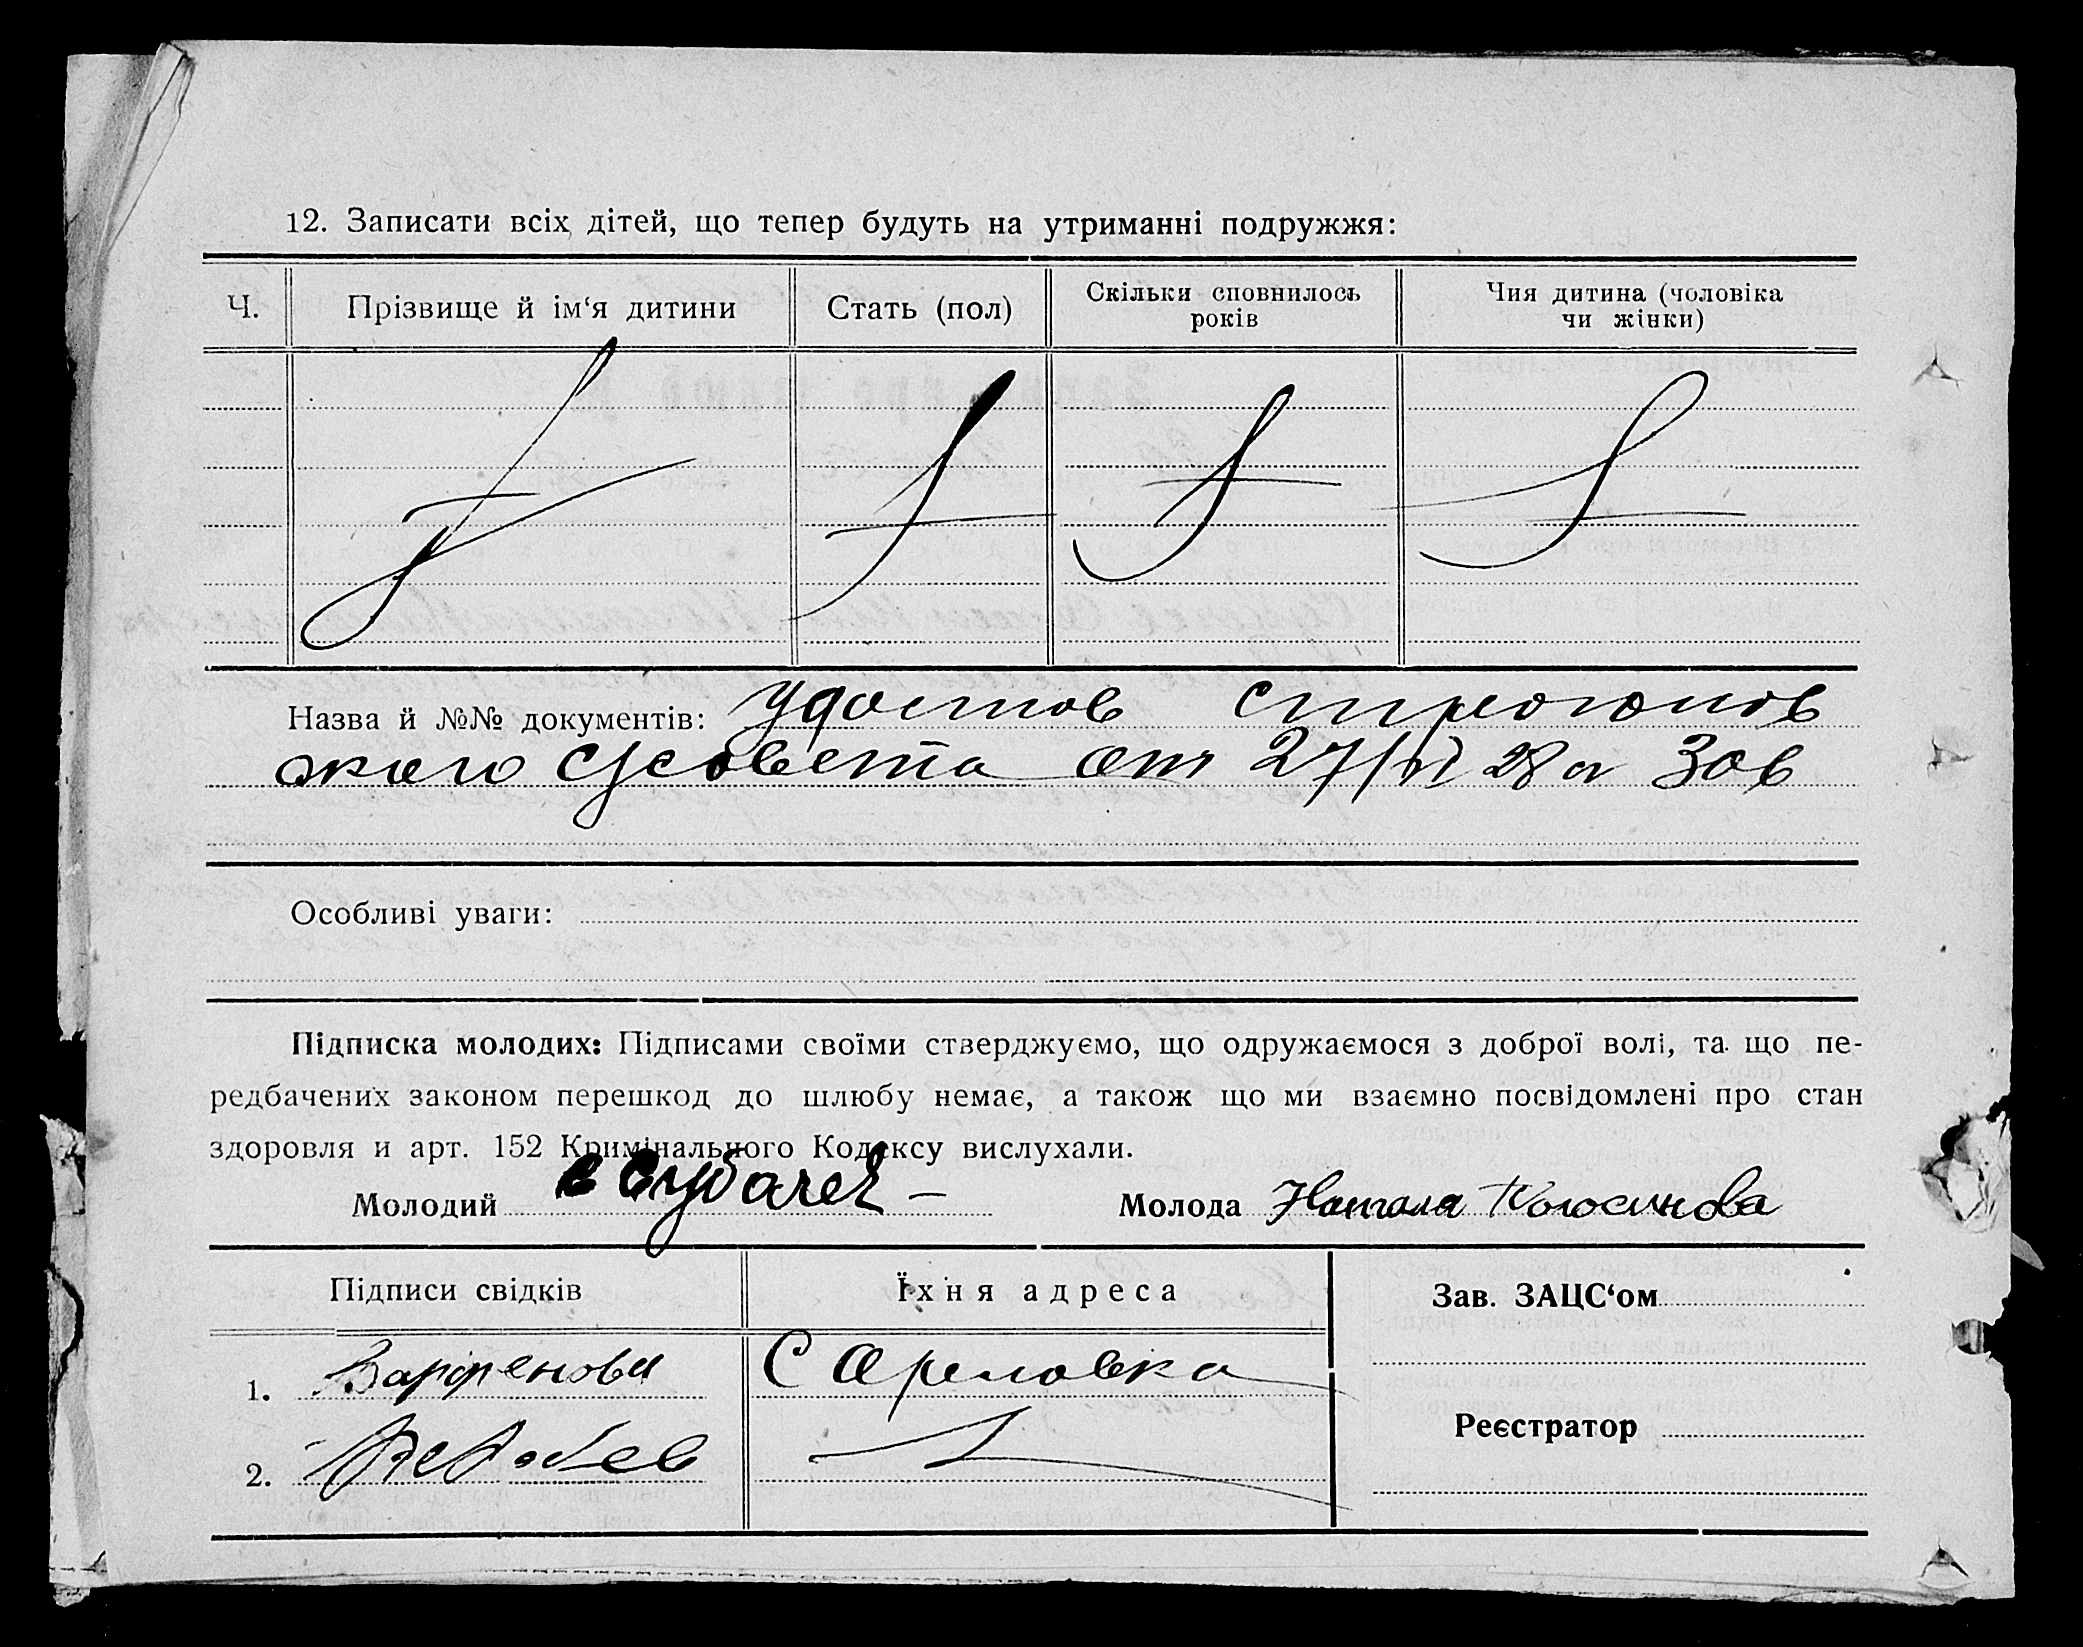 12. Записати всіх дітей, що тепер будуть на утриманні подружжя:
Ч. Прізвище й ім‘я дитини Стать (пол) Скільки сповнилось років Чия дитина (чоловіка чи жінки)
Назва й №№ документів: Удостов
ского с/совета от 27/VI 28 г 306
Особливі уваги:
Підписка молодих: Підписами своїми стверджуємо, що одружаємося з доброї волі, та що пе-
редбачених законом перешкод до шлюбу немає, а також що ми взаємно посвідомлені про стан
здоровля и арт. 152 Кримінального Кодексу вислухали.
Молодий Молода Натала
Підписи свідків Їхня адреса Зав. ЗАЦС‘ом
1. С Ореловка
Реєстратор
2.